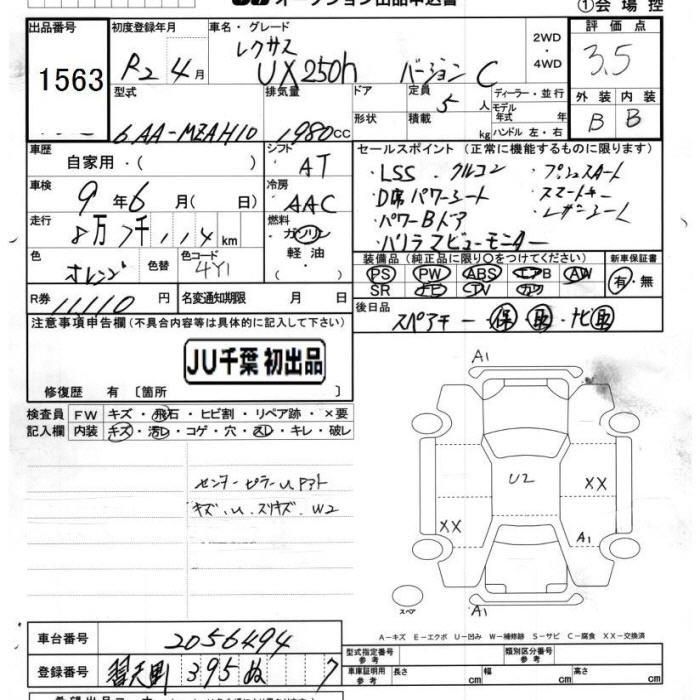 オークション出品申込書
①会場控
出品番号 1563
初度登録年月 R2 4月
車名・グレード レクサス UX250h バージョンC
2WD・4WD
評価点 3.5
外装 B 内装 B
型式 6AA-MZAH10
排気量 1980cc
ドア 形状
定員 5人
積載 kg
ディーラー・並行
モデル年式 年
ハンドル 左・右
車歴 自家用・( )
シフト AT
セールスポイント (正常に機能するものに限ります)
・LSS ・クルコン ・プッシュスタート
・D席パワーシート ・スマートキー
・パワーBドア ・レザーシート
・パノラマビューモニター
車検 9年6月(日)
冷房 AAC
走行 8万7千114km
燃料 ガソリン 軽油
色 オレンジ 色替 色コード 4Y1
装備品 (純正品に限り○をつけてください)
PS PW ABS エアB AW
SR ナビ TV カワ
新車保証書 有・無
R券 11,110円
名変通知期限 月 日
後日品 スペアキー 保 取 ナビ取
注意事項申告欄(不具合内容等は具体的に記入して下さい)
JU千葉 初出品
修復歴 有 〔箇所 〕
検査員記入欄
FW キズ・飛石・ヒビ割・リペア跡・×要
内装 キズ・汚レ・コゲ・穴・スレ・キレ・破レ
センターピラーU
キズ、U、スリキズ、W2
A1
U2
XX
XX
A1
A1
スペア
A-キズ E-エクボ U-凹み W-補修跡 S-サビ C-腐食 XX-交換済
車台番号 2056494
登録番号 395 ぬ 7
型式指定番号 参考
類別区分番号 参考
車庫証明用 参考 長さ cm 幅 cm 高さ cm
希望出品コーナー